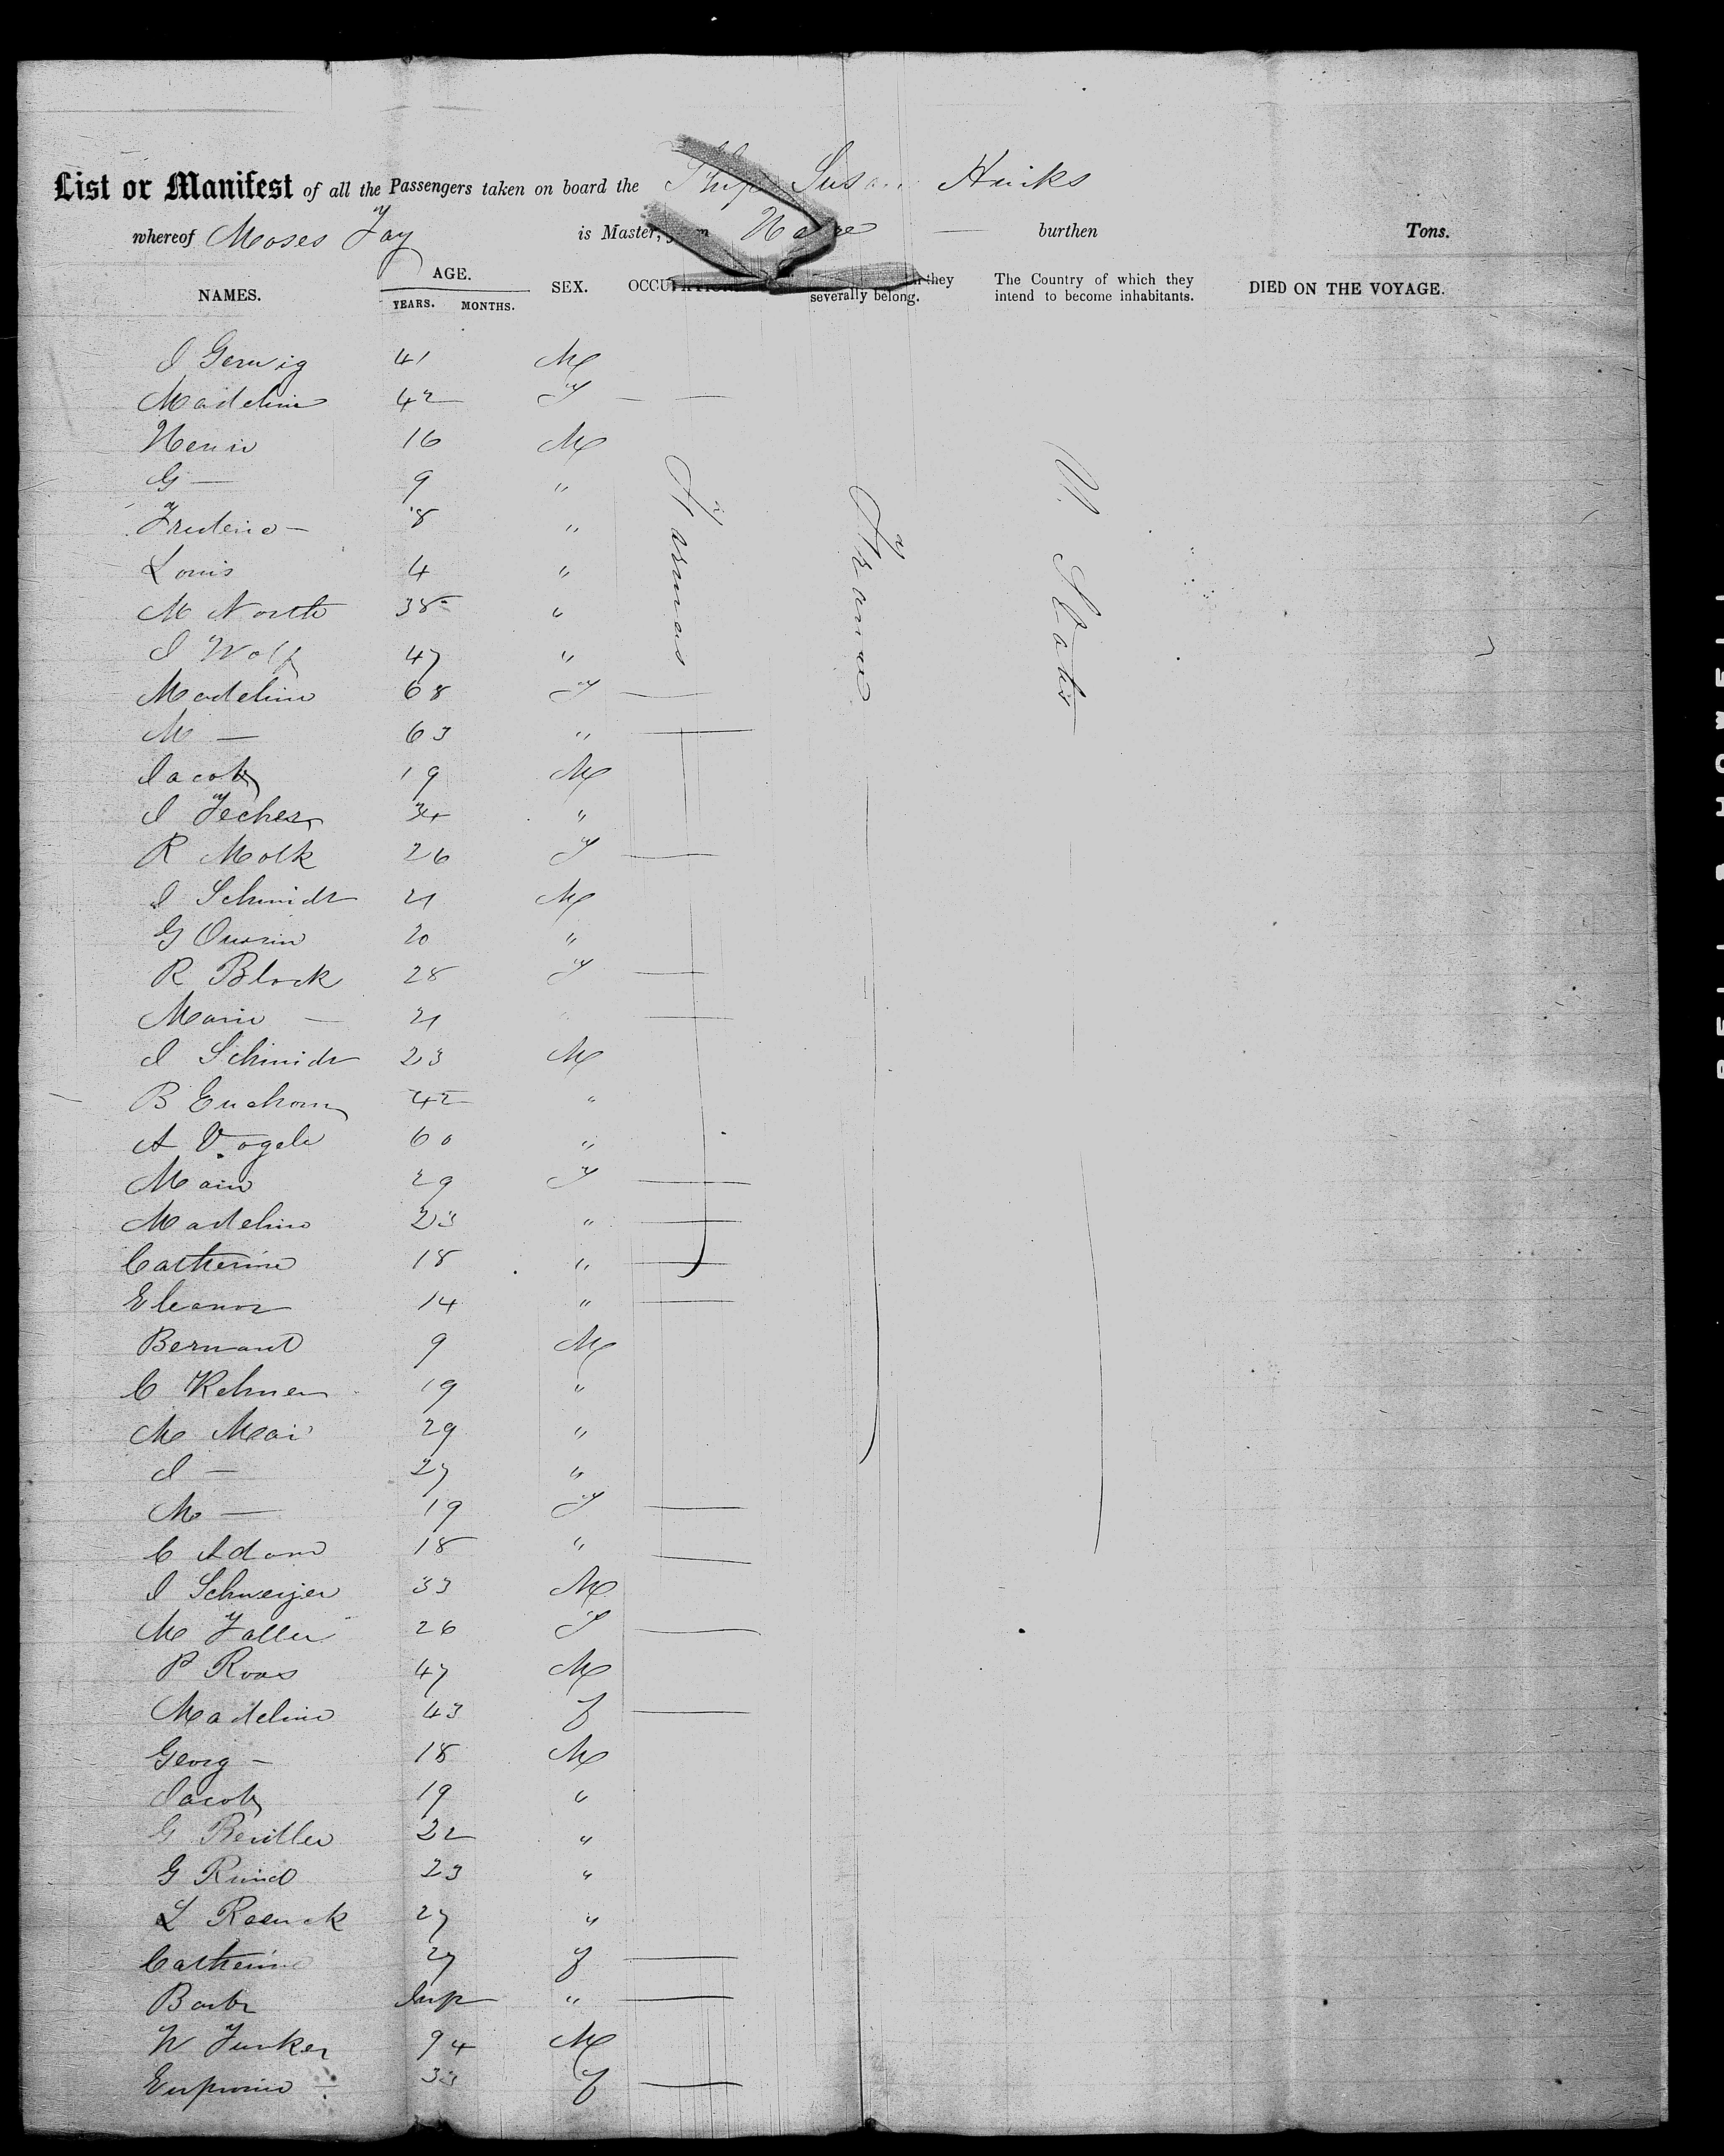 List or Manifest of all the Passengers taken on board the Ship Susan Hinks
whereof Moses Fay is Master, from Havre — burthen Tons.
NAMES. AGE. YEARS. MONTHS. SEX. OCCUPATION they severally belong. The Country of which they intend to become inhabitants. DIED ON THE VOYAGE.
J Gerwig 41 M
Madeline 42 F — —
Henri 16 M
G — 9 "
Frederic — 8 "
Louis 4 "
M North 38 "
J Wolf 47 "
Madeline 68 F —
M — 63 " —
Jacob 19 M
J Fecher 34 "
R Molk 26 F —
J Schmidt 21 M
G 20 "
R Block 28 F —
Marie — 21 " —
J Schmidt 23 M
B 42 "
A Vogele 60 "
Marie 29 F —
Madeline 23 " —
Catherine 18 " —
Eleanor 14 " —
Bernard 9 M
C 19 "
M Mai 29 "
J — 27 "
M — 19 F —
C Adam 18 " —
J 33 M
M Faller 26 F —
P Roos 47 M
Madeline 43 f —
Georg — 18 M
Jacob 19 "
G 22 "
G 23 "
L 27 "
Catherine 27 f —
Barbr Inf " —
W Junker 94 M
— 33 f —
Farmers
France
U. States